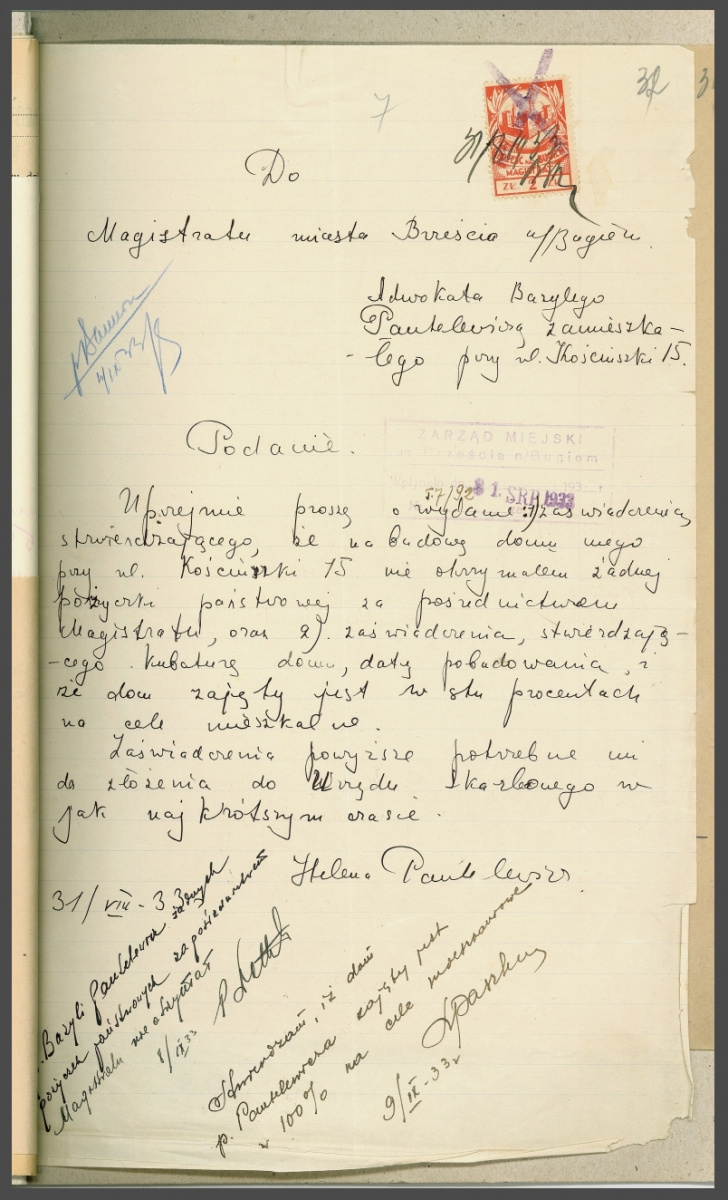 7
32
ZŁ 2 ZŁ
Do
Magistratu miasta Brześcia n/Bugiem.
Adwokata Bazylego
Pantelewicza zamieszka-
-łego przy ul. Kościuszki 15.
Podanie.
ZARZĄD MIEJSKI
m. Brześcia n/Bugiem
31. SRP. 1933
Uprzejmie proszę o wydanie: 1) zaświadczenia,
stwierdzającego, że na budowę domu mego
przy ul. Kościuszki 15 nie otrzymałem żadnej
pożyczki państwowej za pośrednictwem
Magistratu, oraz 2). zaświadczenia, stwierdzają-
-cego kubaturę domu, datę pobudowania, i
że dom zajęty jest w stu procentach
na cele mieszkalne.
Zaświadczenia powyższe potrzebne mi
do złożenia do Urzędu Skarbowego w
jak najkrótszym czasie.
Helena Pantelewicz.
31/VIII-33
p. Bazyli Pantelewicz żadnych
pożyczek państwowych za pośrednictwem
Magistratu nie otrzymał
1/IX 33
Stwierdzam, iż dom
p. Pantelewicza zajęty jest
w 100% na cele mieszkaniowe
9/IX-33r